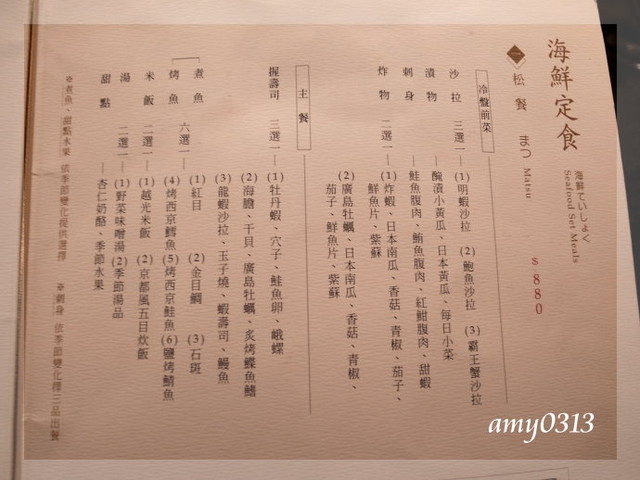 海鮮定食
海鮮ていしょく
Seafood Set Meals
一 松餐 まつ Matsu
$880
冷盤前菜
沙拉 三選一 (1)明蝦沙拉 (2)鮑魚沙拉 (3)霸王蟹沙拉
漬物 醃漬小黃瓜、日本黃瓜、每日小菜
刺身 鮭魚腹肉、鮪魚腹肉、紅魽腹肉、甜蝦
炸物 二選一 (1)炸蝦、日本南瓜、香菇、青椒、茄子、
鮮魚片、紫蘇
(2)廣島牡蠣、日本南瓜、香菇、青椒、
茄子、鮮魚片、紫蘇
主餐
握壽司 三選一 (1)牡丹蝦、穴子、鮭魚卵、峨螺
(2)海膽、干貝、廣島牡蠣、炙烤鰈魚鰭
(3)龍蝦沙拉、玉子燒、蝦壽司、鰻魚
煮魚 六選一 (1)紅目 (2)金目鯛 (3)石斑
烤魚 (4)烤西京鱈魚 (5)烤西京鮭魚 (6)鹽烤鯖魚
米飯 二選一 (1)越光米飯 (2)京都風五目炊飯
湯 二選一 (1)野菜味噌湯 (2)季節湯品
甜點 杏仁奶酪、季節水果
※煮魚、甜點水果 依季節變化提供選擇 ※刺身 依季節變化擇三品出餐
amy0313